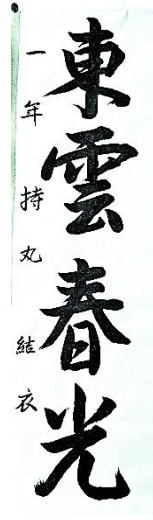 東雲春光
一年 持丸 結衣